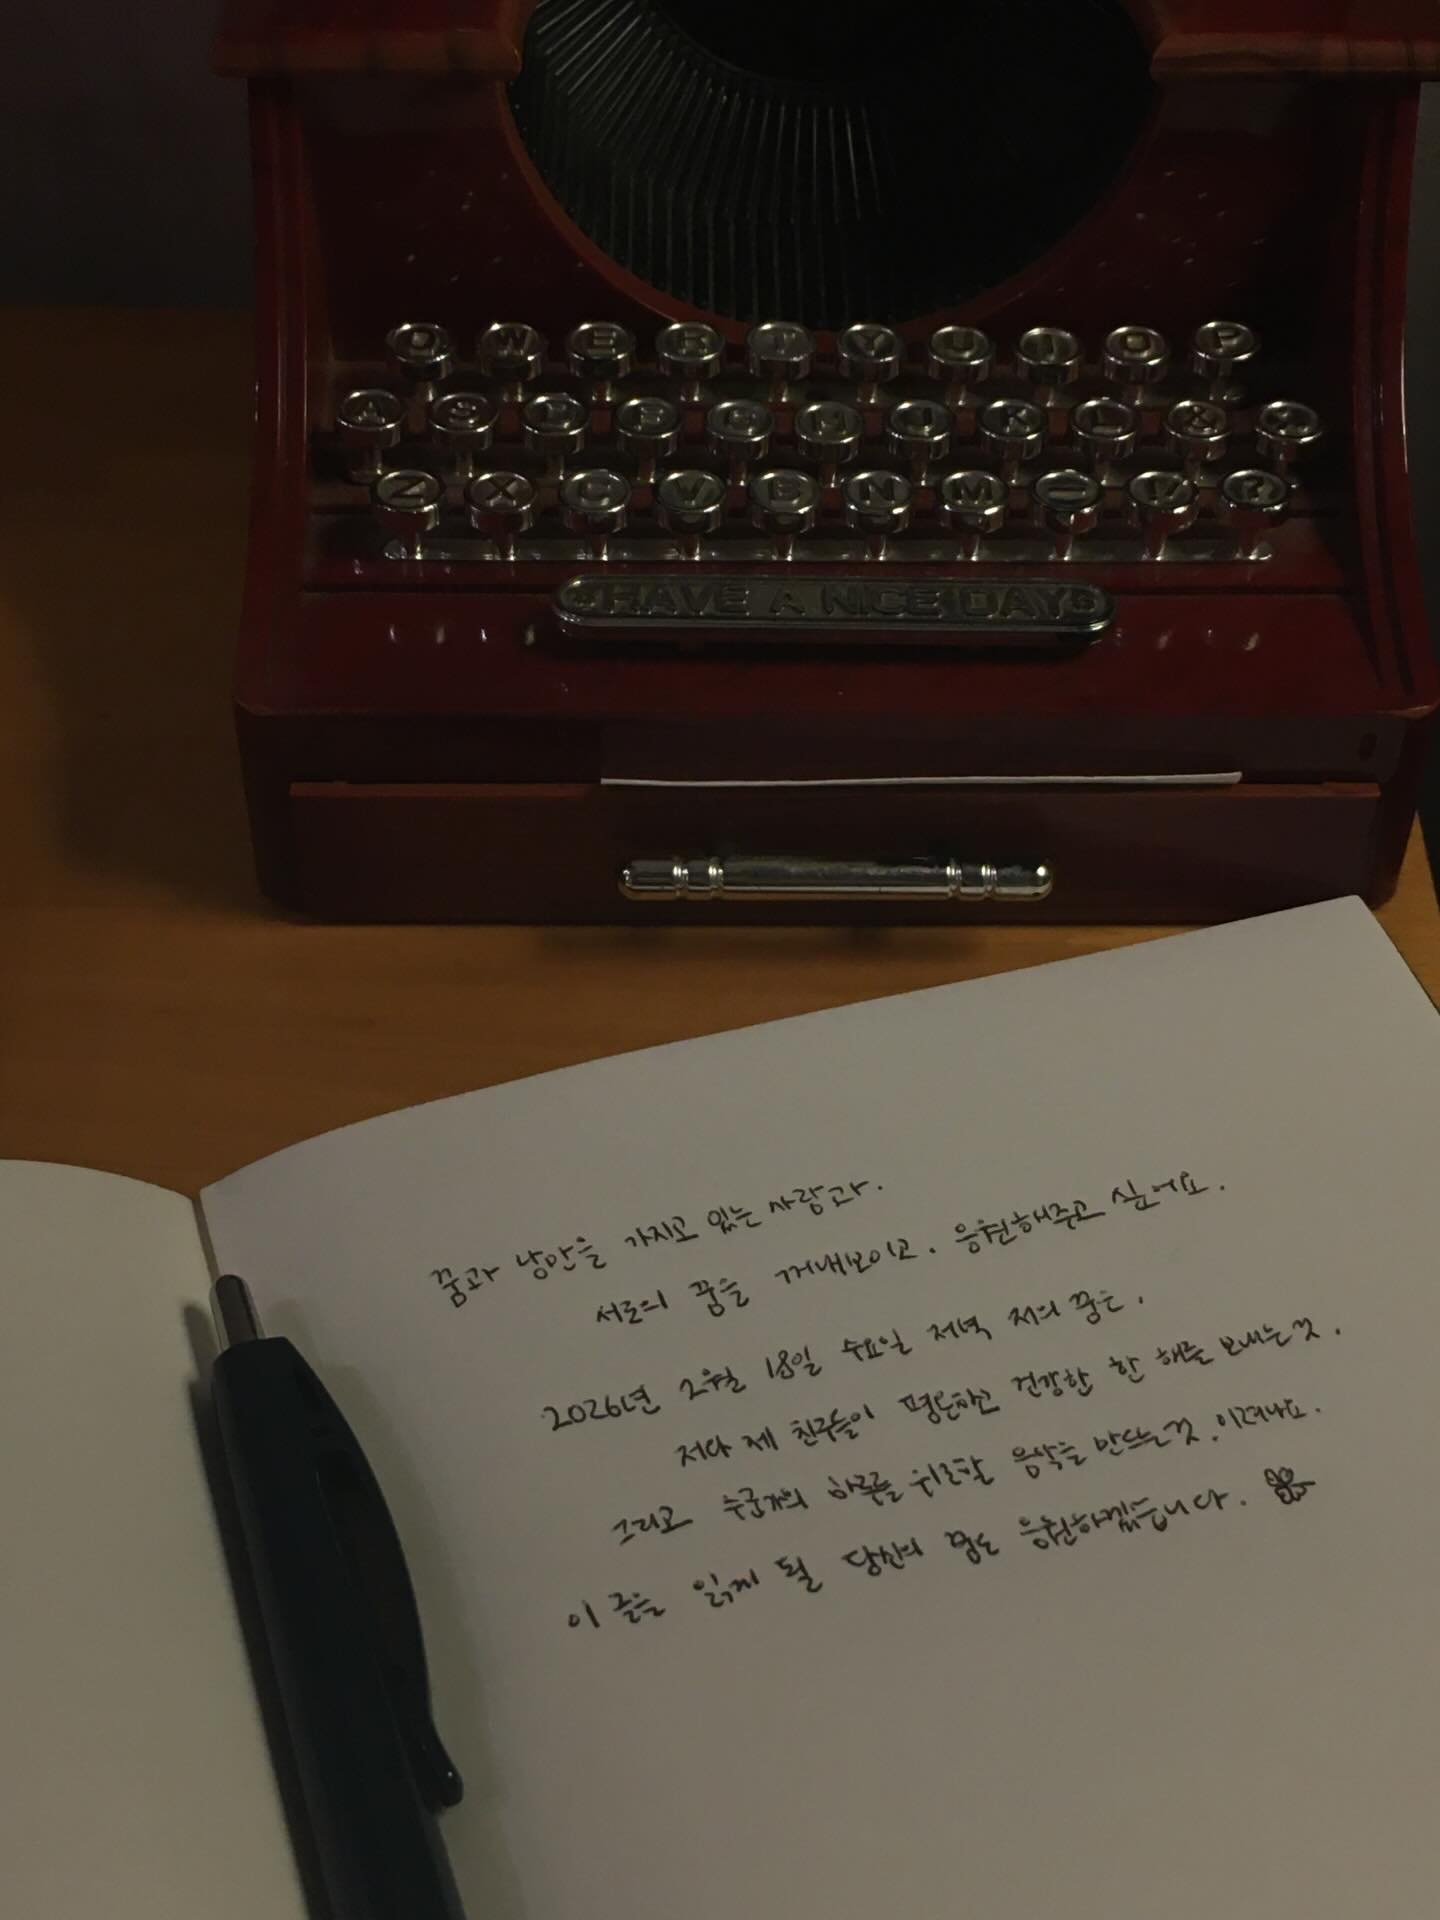 Q W E R T Y U I O P
A S D F G H J K L &
Z X C V B N M — ?
HAVE A NICE DAY
꿈과 낭만을 가지고 있는 사람과.
서로의 꿈을 꺼내보이고. 응원해주고 싶어요.
2026년 2월 18일 수요일 저녁 저의 꿈은.
저와 제 친구들이 평온하고 건강한 한 해를 보내는 것.
그리고 누군가의 하루를 위로할 음악을 만드는 것. 이려나요.
이 글을 읽게 될 당신의 꿈도 응원하겠습니다.